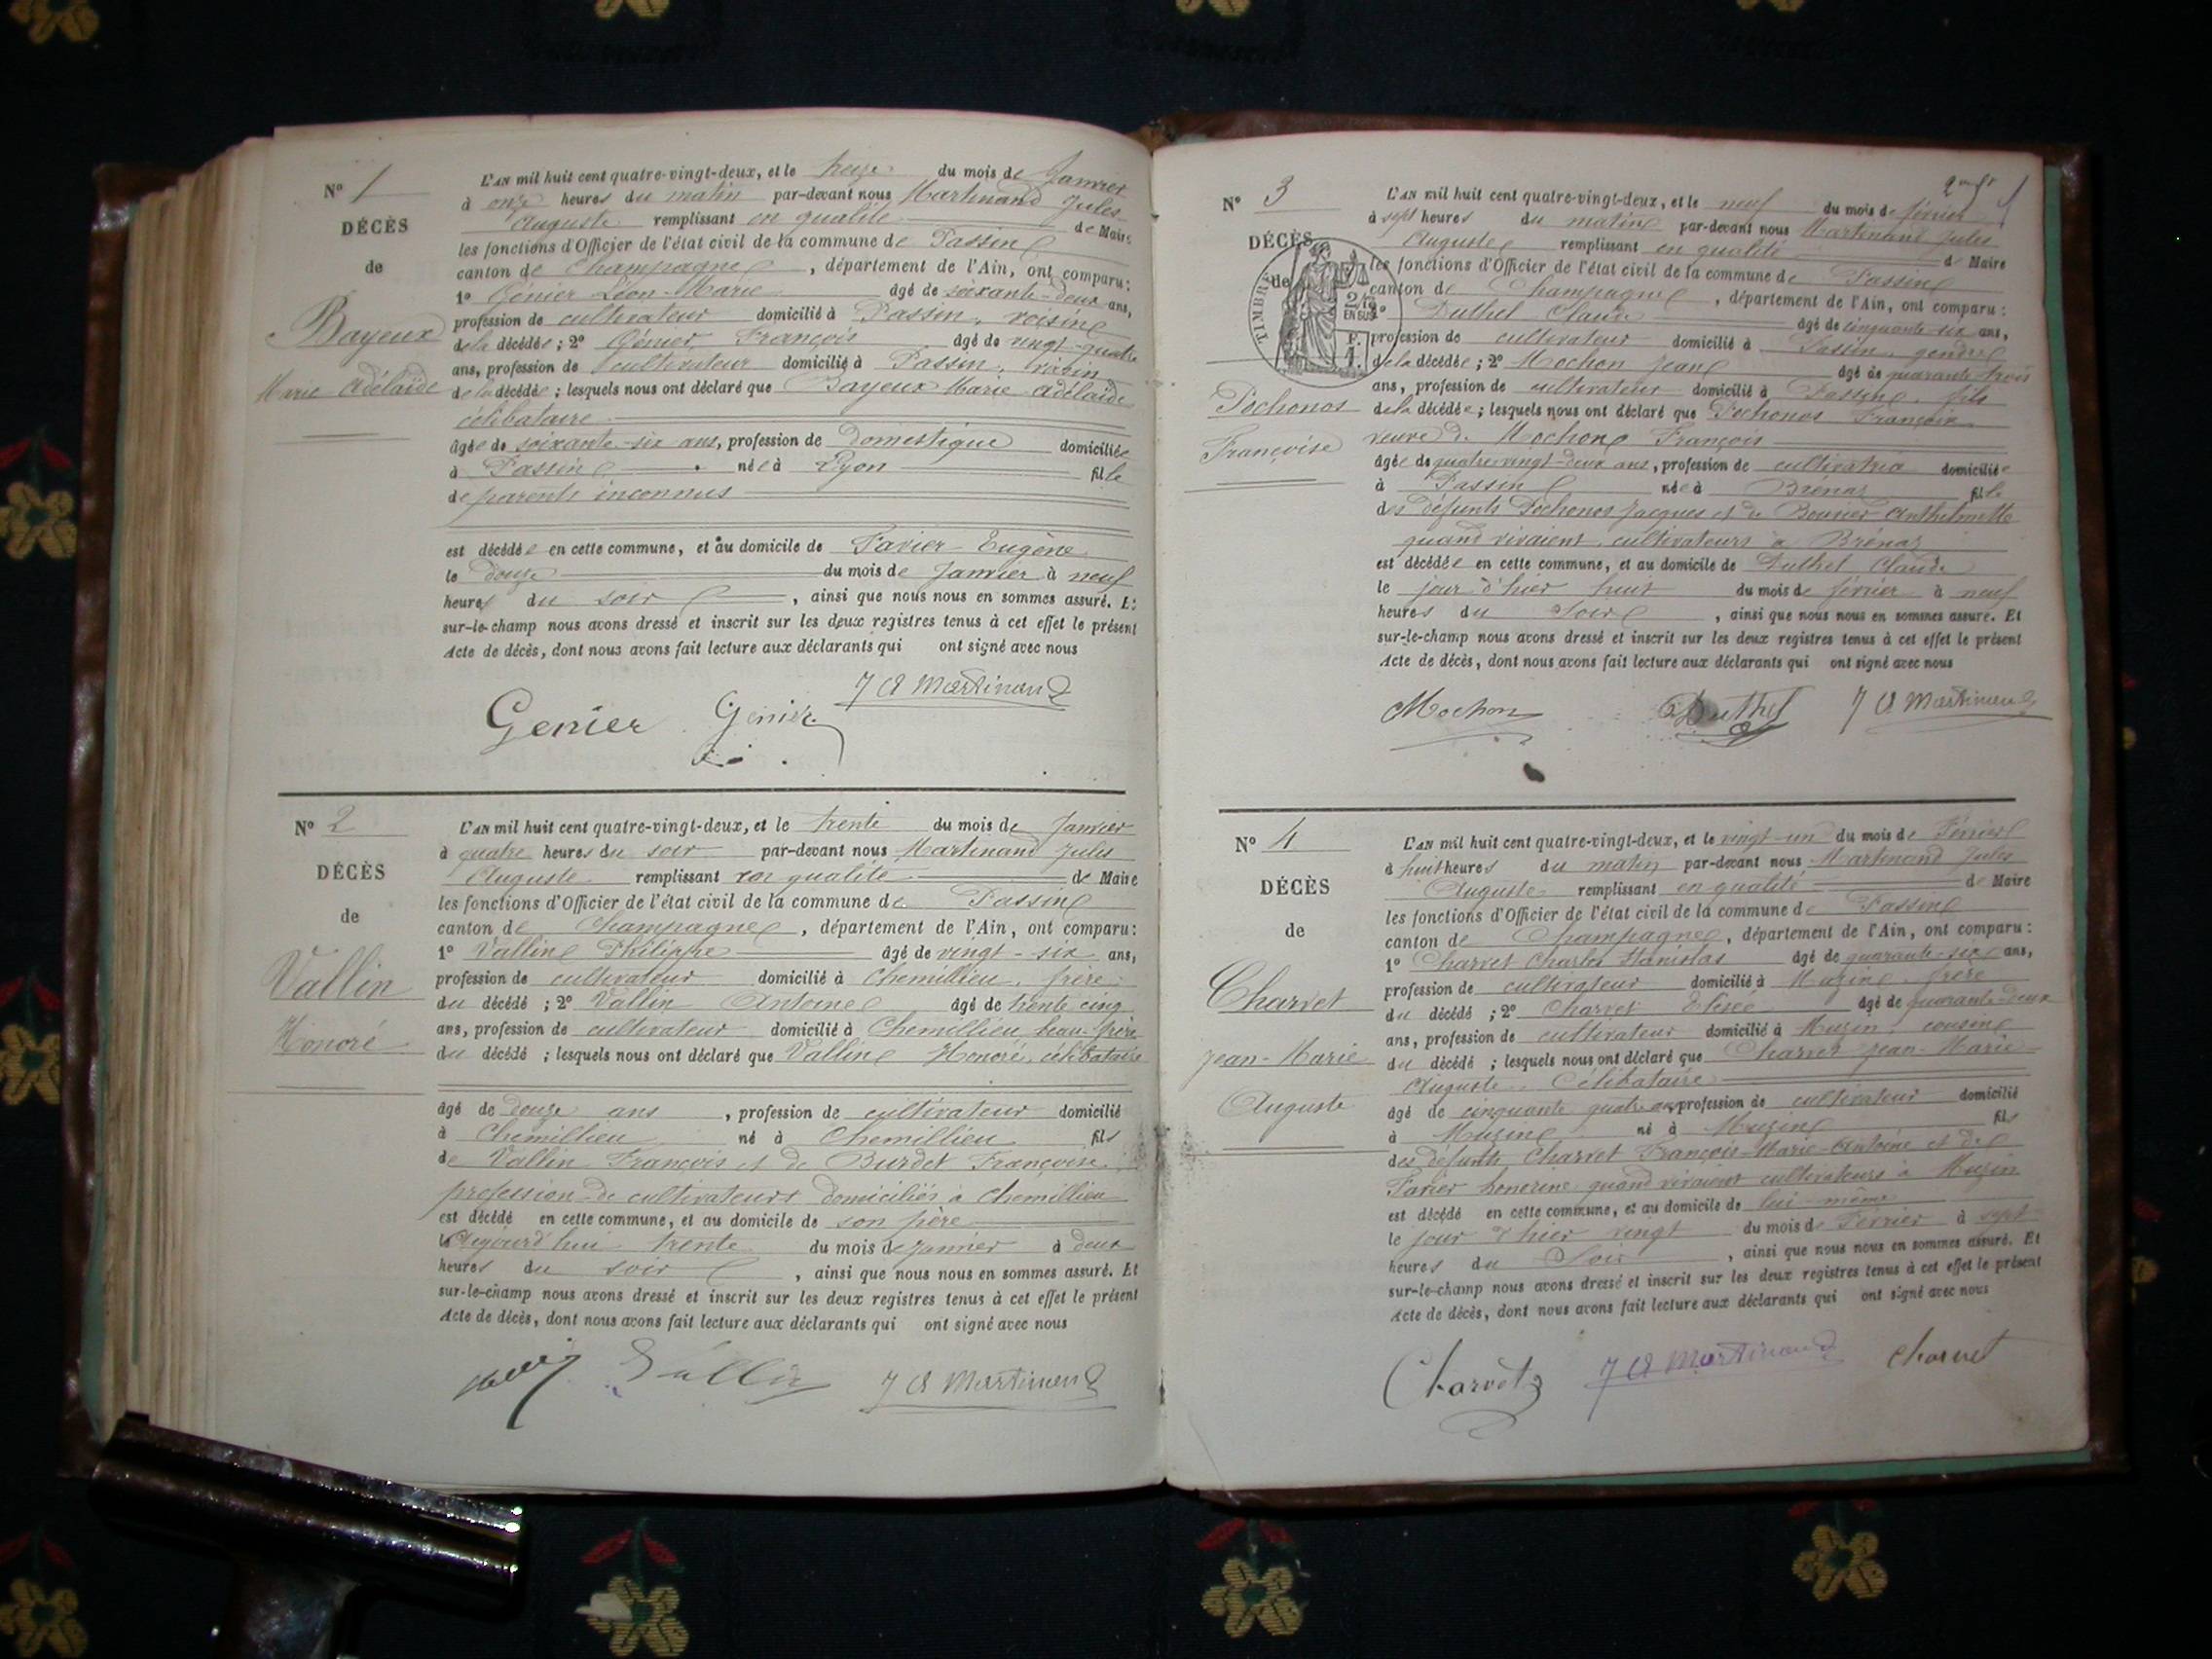 Nº 1
DÉCÈS
de
Bayeux
Marie Adélaïde
L'AN mil huit cent quatre-vingt-deux, et le treize du mois de Janvier
à onze heures du matin par-devant nous Martinand Jules
Auguste remplissant en qualité de Maire
les fonctions d'Officier de l'état civil de la commune de Passin
canton de Champagne, département de l'Ain, ont comparu:
1º Génier Léon-Marie âgé de soixante-deux ans,
profession de cultivateur domicilié à Passin, voisin
de la décédée; 2º Génier François âgé de vingt-quatre
ans, profession de cultivateur domicilié à Passin, voisin
de la décédée; lesquels nous ont déclaré que Bayeux Marie Adélaïde
célibataire
âgée de soixante-six ans, profession de domestique domiciliée
à Passin née à Lyon fille
de parents inconnus
est décédée en cette commune, et au domicile de Favier Eugène
le douze du mois de Janvier à neuf
heures du soir, ainsi que nous nous en sommes assuré. Et
sur-le-champ nous avons dressé et inscrit sur les deux registres tenus à cet effet le présent
Acte de décès, dont nous avons fait lecture aux déclarants qui ont signé avec nous
Genier Genier J A Martinand
Nº 2
DÉCÈS
de
Vallin
Honoré
L'AN mil huit cent quatre-vingt-deux, et le trente du mois de Janvier
à quatre heures du soir par-devant nous Martinand Jules
Auguste remplissant en qualité de Maire
les fonctions d'Officier de l'état civil de la commune de Passin
canton de Champagne, département de l'Ain, ont comparu:
1º Vallin Philippe âgé de vingt-six ans,
profession de cultivateur domicilié à Chemillieu, frère
du décédé; 2º Vallin Antoine âgé de trente cinq
ans, profession de cultivateur domicilié à Chemillieu, beau-frère
du décédé; lesquels nous ont déclaré que Vallin Honoré, célibataire
âgé de douze ans, profession de cultivateur domicilié
à Chemillieu né à Chemillieu fils
de Vallin François et de Burdet Françoise
profession de cultivateurs domiciliés à Chemillieu
est décédé en cette commune, et au domicile de son père
le Aujourd'hui trente du mois de Janvier à deux
heures du soir, ainsi que nous nous en sommes assuré. Et
sur-le-champ nous avons dressé et inscrit sur les deux registres tenus à cet effet le présent
Acte de décès, dont nous avons fait lecture aux déclarants qui ont signé avec nous
Vallin J A Martinand
Nº 3
DÉCÈS
de
TIMBRE
2/10 EN SUS
Pochonos
Françoise
L'AN mil huit cent quatre-vingt-deux, et le neuf du mois de février
à sept heures du matin par-devant nous Martinand Jules
Auguste remplissant en qualité de Maire
les fonctions d'Officier de l'état civil de la commune de Passin
canton de Champagne, département de l'Ain, ont comparu:
1º Duthel Claude âgé de cinquante six ans,
profession de cultivateur domicilié à Passin, gendre
de la décédée; 2º Mochon Jean âgé de quarante trois
ans, profession de cultivateur domicilié à Passin, fils
de la décédée; lesquels nous ont déclaré que Pochonos Françoise
veuve de Mochon François
âgée de quatre vingt-deux ans, profession de cultivatrice domiciliée
à Passin née à Brénaz fille
des défunts Pochonos Jacques et de Anthelmette
quand vivaient cultivateurs à Brénaz
est décédée en cette commune, et au domicile de Duthel Claude
le jour d'hier huit du mois de février à neuf
heures du soir, ainsi que nous nous en sommes assuré. Et
sur-le-champ nous avons dressé et inscrit sur les deux registres tenus à cet effet le présent
Acte de décès, dont nous avons fait lecture aux déclarants qui ont signé avec nous
Mochon Duthel J A Martinand
Nº 4
DÉCÈS
de
Charvet
Jean-Marie
Auguste
L'AN mil huit cent quatre-vingt-deux, et le vingt-un du mois de Février
à huit heures du matin par-devant nous Martinand Jules
Auguste remplissant en qualité de Maire
les fonctions d'Officier de l'état civil de la commune de Passin
canton de Champagne, département de l'Ain, ont comparu:
1º Charvet Charles Stanislas âgé de quarante-six ans,
profession de cultivateur domicilié à Muzin, frère
du décédé; 2º Charvet Elisée âgé de quarante-deux
ans, profession de cultivateur domicilié à Muzin, cousin
du décédé; lesquels nous ont déclaré que Charvet Jean-Marie
Auguste Célibataire
âgé de cinquante quatre ans, profession de cultivateur domicilié
à Muzin né à Muzin fils
des défunts Charvet François-Marie-Antoine et de
Favier quand vivaient cultivateurs à Muzin
est décédé en cette commune, et au domicile de lui-même
le jour d'hier vingt du mois de Février à sept
heures du Soir, ainsi que nous nous en sommes assuré. Et
sur-le-champ nous avons dressé et inscrit sur les deux registres tenus à cet effet le présent
Acte de décès, dont nous avons fait lecture aux déclarants qui ont signé avec nous
Charvet J A Martinand Charvet